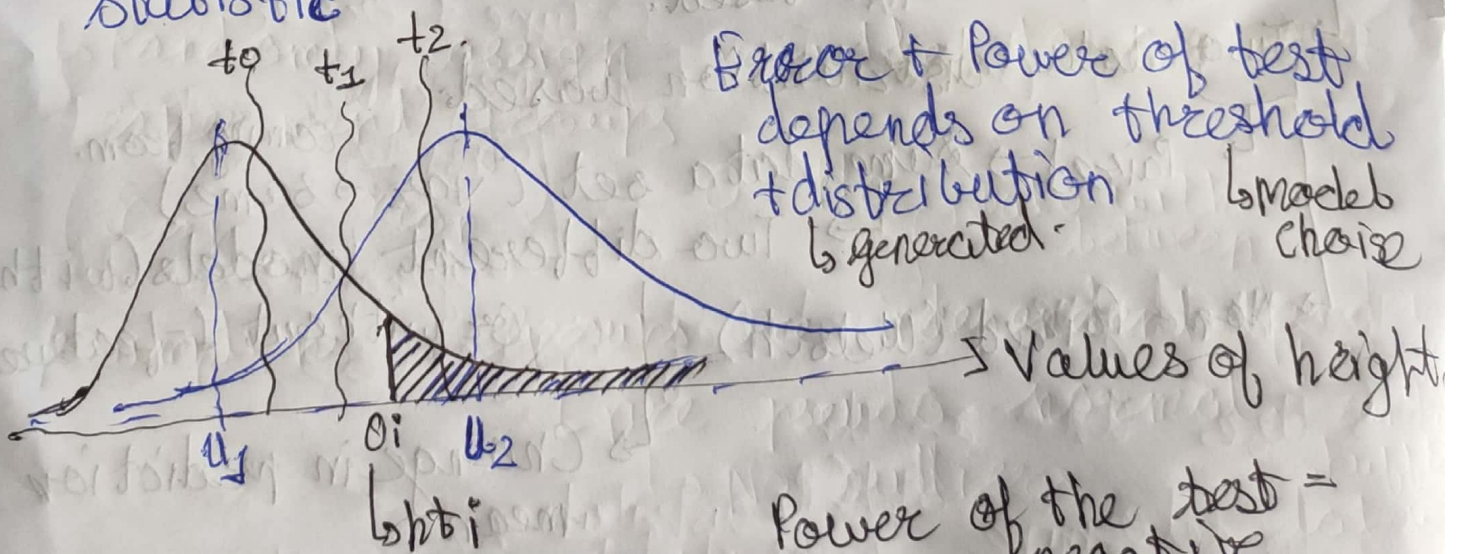 t0
t1
t2.
Error + Power of test
depends on threshold
+ distribution ↳ model
↳ generated. choise
Values of height.
u1
Oi
u2
↳ hti
Power of the test =